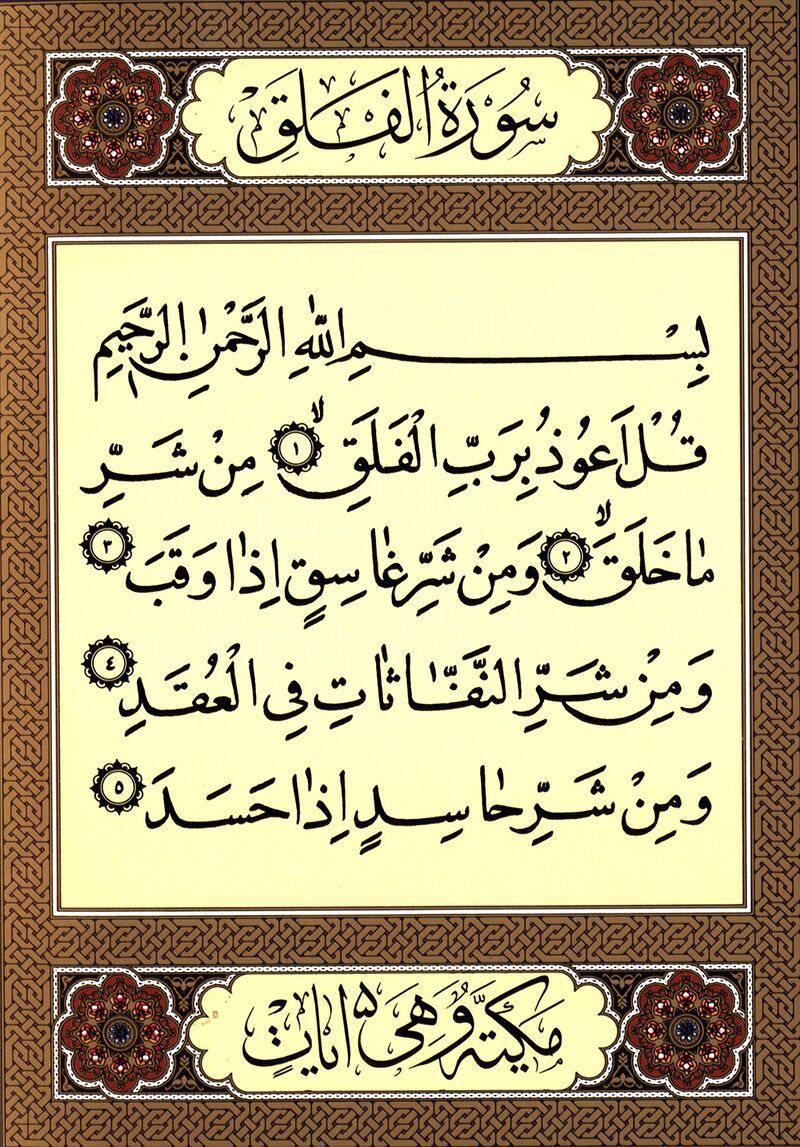 سُورَةُ الْفَلَقِ
بِسْمِ اللّٰهِ الرَّحْمٰنِ الرَّحٖيمِ
قُلْ اَعُوذُ بِرَبِّ الْفَلَقِۙ ١ مِنْ شَرِّ
مٰا خَلَقَۙ ٢ وَمِنْ شَرِّ غٰاسِقٍ اِذٰا وَقَبَ ٣
وَمِنْ شَرِّ النَّفّٰاثٰاتِ فِي الْعُقَدِ ٤
وَمِنْ شَرِّ حٰاسِدٍ اِذٰا حَسَدَ ٥
مَكِّيَّةٌ وَهِيَ ٥ اٰيٰاتٍ